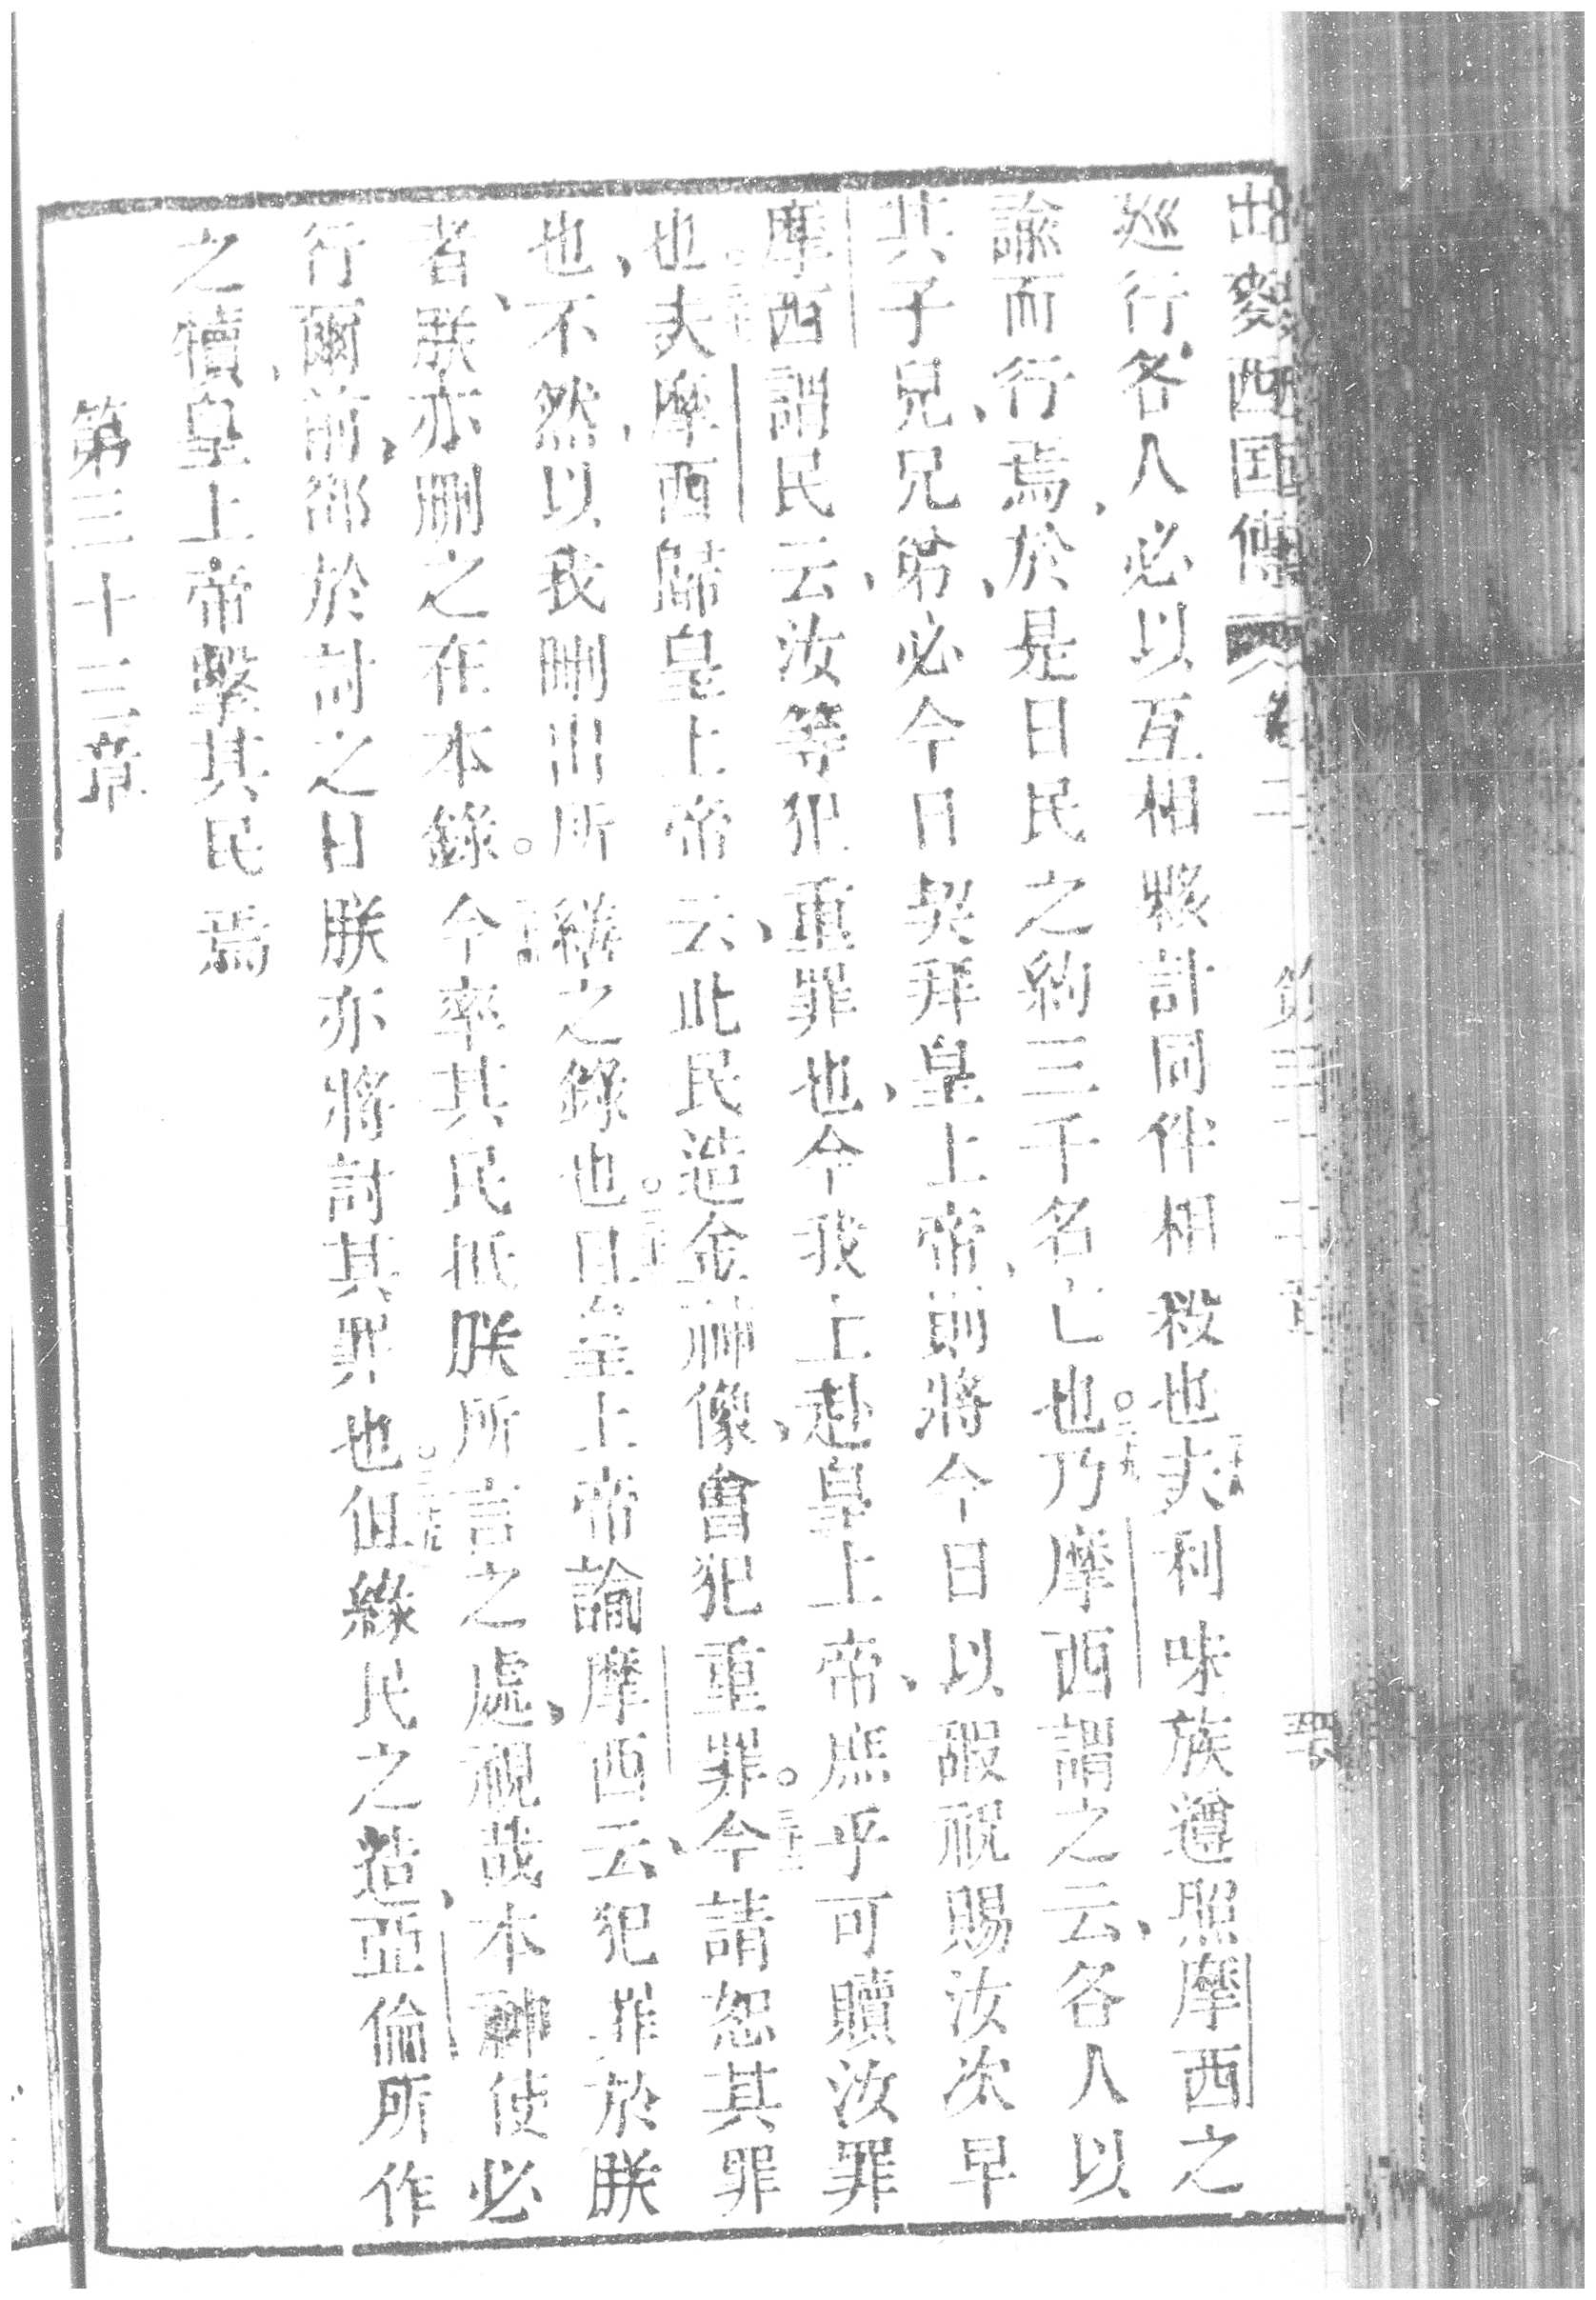 出麥西国傳 卷二 第三十二章
巡行各人必以互相夥計同伴相殺也夫利味族遵照摩西之
諭而行焉於是日民之約三千名亡也乃摩西謂之云各人以
其子兄兄弟必今日契拜皇上帝則將今日以嘏祝賜汝次早
摩西謂民云汝等犯重罪也今我上赴皇上帝庶乎可贖汝罪
也夫摩西歸皇上帝云此民造金神像曾犯重罪今請恕其罪
也不然以我刪出所繕之錄也且皇上帝論摩西云犯罪於朕
者朕亦刪之在本錄今率其民抵朕所言之處視哉本神使必
行爾前都於討之日朕亦將討其罪也但緣民之造亞倫所作
之犢皇上帝擊其民焉
第三十三章